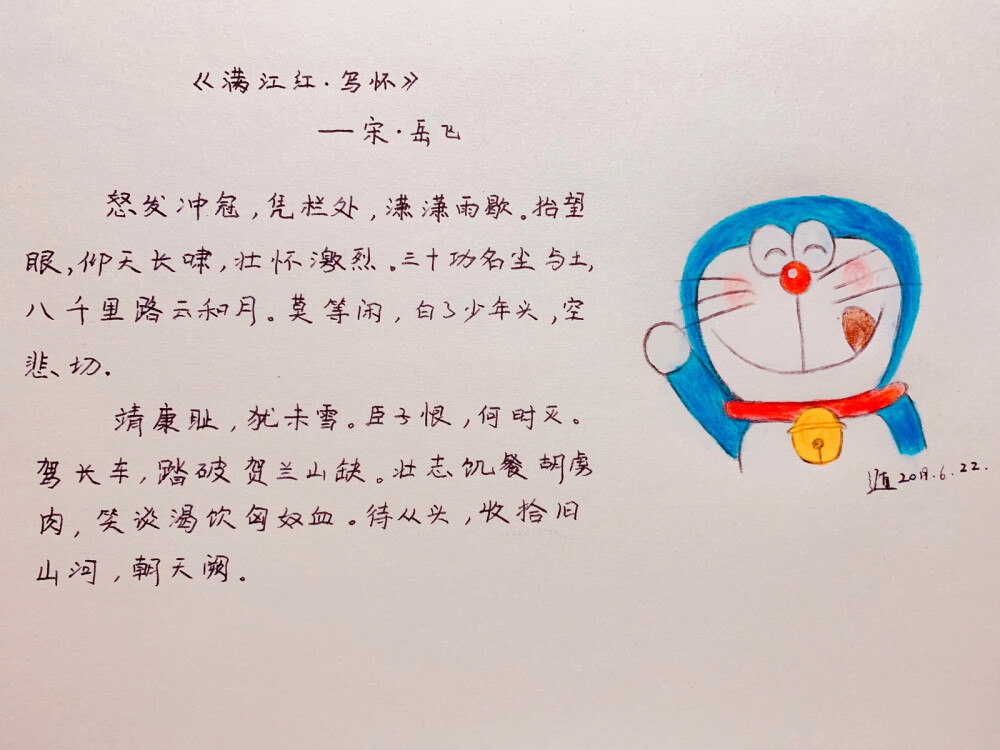 《满江红·写怀》
——宋·岳飞
怒发冲冠,凭栏处,潇潇雨歇。抬望
眼,仰天长啸,壮怀激烈。三十功名尘与土,
八千里路云和月。莫等闲,白了少年头,空
悲、切.
靖康耻,犹未雪。臣子恨,何时灭。
驾长车,踏破贺兰山缺。壮志饥餐胡虏
肉,笑谈渴饮匈奴血。待从头,收拾旧
山河,朝天阙。
2019.6.22.